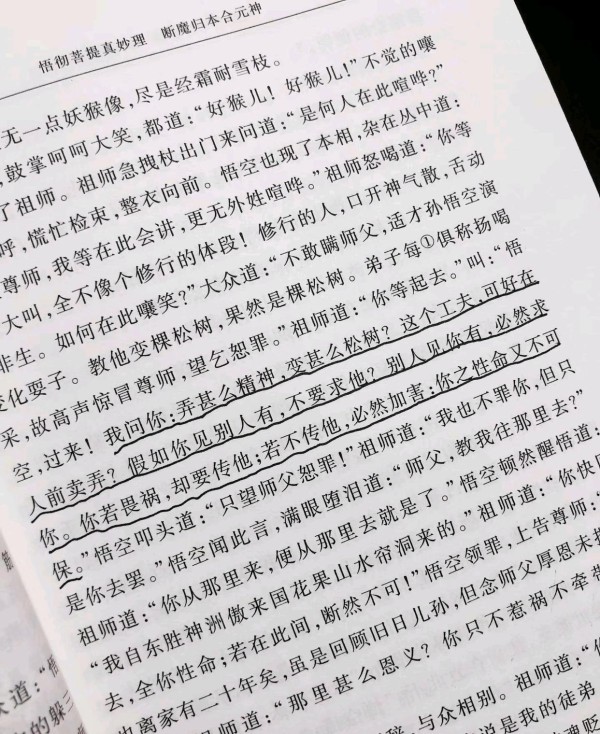 悟彻菩提真妙理 断魔归本合元神
无一点妖猴像，尽是经霜耐雪枝。
，鼓掌呵呵大笑，都道：“好猴儿！好猴儿！”不觉的嚷
了祖师。祖师急拽杖出门来问道：“是何人在此喧哗？”
呼，慌忙检束，整衣向前。悟空也现了本相，杂在丛中道：
尊师，我等在此会讲，更无外姓喧哗。”祖师怒喝道：“你等
大叫，全不像个修行的体段！修行的人，口开神气散，舌动
非生。如何在此嚷笑？”大众道：“不敢瞒师父，适才孙悟空演
变化耍子。教他变棵松树，果然是棵松树。弟子每①俱称扬喝
采，故高声惊冒尊师，望乞恕罪。”祖师道：“你等起去。”叫：“悟
空，过来！我问你：弄甚么精神，变甚么松树？这个工夫，可好在
人前卖弄？假如你见别人有，不要求他？别人见你有，必然求
你。你若畏祸，却要传他；若不传他，必然加害：你之性命又不可
保。”悟空叩头道：“只望师父恕罪！”祖师道：“我也不罪你，但只
是你去罢。”悟空闻此言，满眼堕泪道：“师父，教我往那里去？”
祖师道：“你从那里来，便从那里去就是了。”悟空顿然醒悟道：
“我自东胜神洲傲来国花果山水帘洞来的。”祖师道：“你快
去，全你性命；若在此间，断然不可！”悟空领罪，上告尊师：
也离家有二十年矣，虽是回顾旧日儿孙，但念师父厚恩未
道：“那里甚么恩义？你只不惹祸不牵
，与众相别。祖师道：
说是我的徒弟
众道：
中的躲三